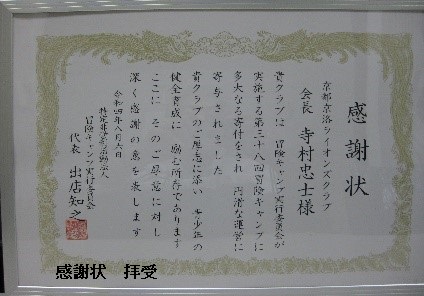 感謝状
京都京洛ライオンズクラブ
会長 寺村忠士様
貴クラブは 冒険キャンプ実行委員会が
実施する第三十八回冒険キャンプに
多大なる寄付をされ 円滑な運営に
寄与されました
貴クラブのご厚志に添い 青少年の
健全育成に 励む所存であります
ここに そのご厚志に対し
深く感謝の意を表します
令和四年八月六日
特定非営利活動法人
冒険キャンプ実行委員会
代表 出店知之
感謝状 拝受